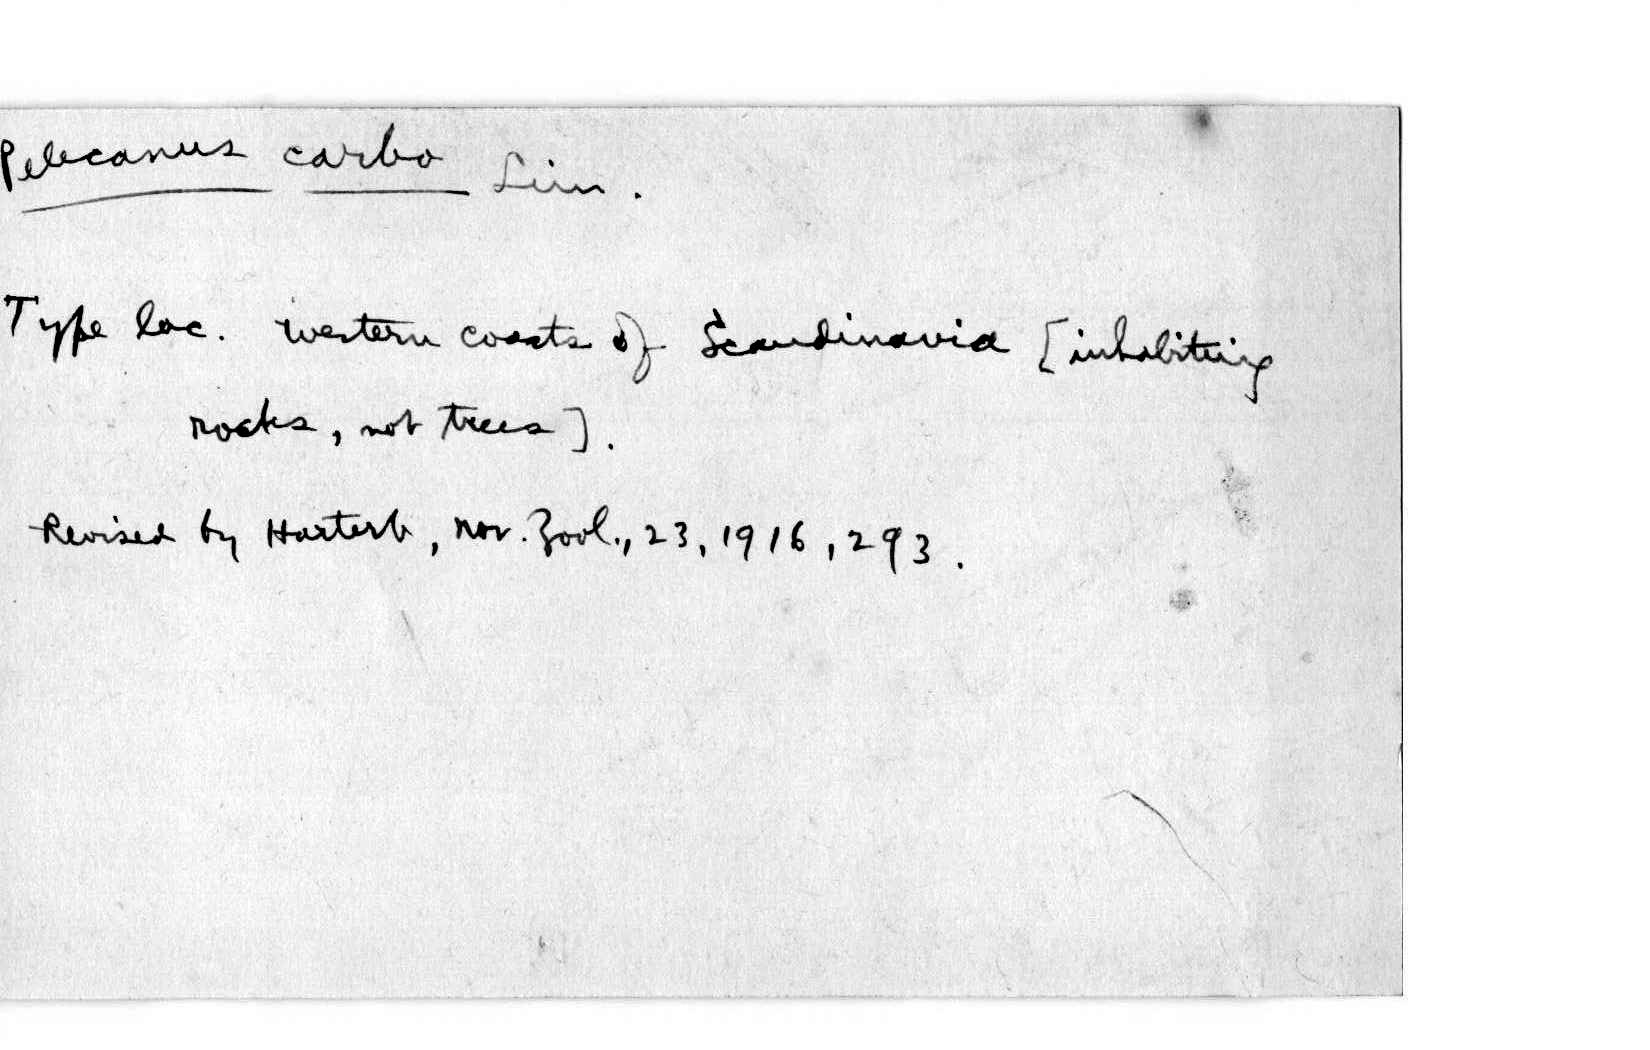 Pelecanus carbo Linn.
Type loc. western coasts of Scandinavia [inhabiting
rocks, not trees].
Revised by Hartert, Nov. Zool., 23, 1916, 293.